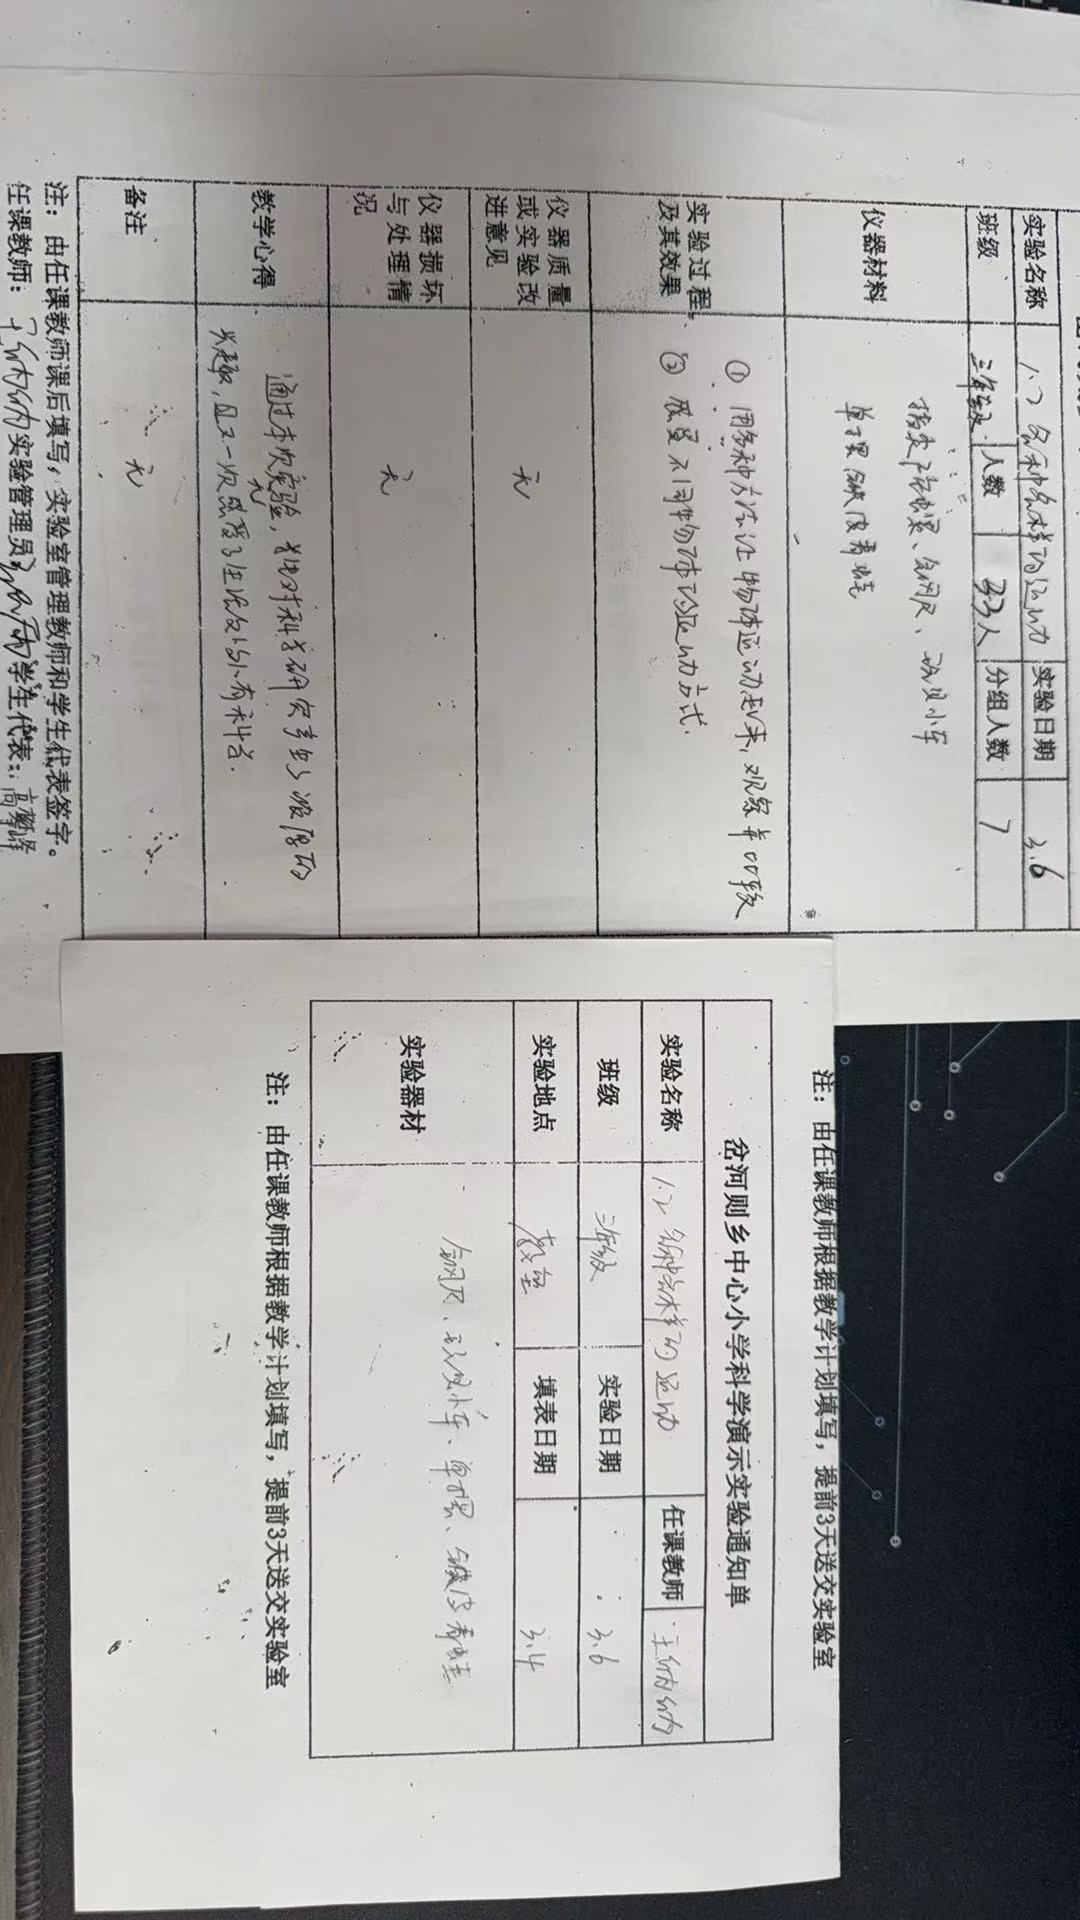 实验名称 1.2 各种各样的运动 实验日期 3.6
班级 三年级 人数 33人 分组人数 7
仪器材料 指尖陀螺、钢尺、玩具小车
单摆 铁皮青蛙
实验过程及其效果 ① 用多种方法让物体运动起来,观察并比较
② 感受不同物体的运动方式.
仪器质量或实验改进意见 无
仪器损坏与处理情况 无
教学心得 通过本次实验,我对科学研究产生了浓厚的
兴趣,且又一次感受了生活处处有科学.
备注 无
注:由任课教师课后填写,实验室管理教师和学生代表签字。
任课教师: 实验管理员: 学生代表:
注:由任课教师根据教学计划填写,提前3天送交实验室
岔河则乡中心小学科学演示实验通知单
实验名称 1.2 各种各样的运动 任课教师 王纳纳
班级 三年级 实验日期 3.6
实验地点 教室 填表日期 3.4
实验器材 钢尺、玩具小车、单摆、铁皮青蛙
注:由任课教师根据教学计划填写,提前3天送交实验室